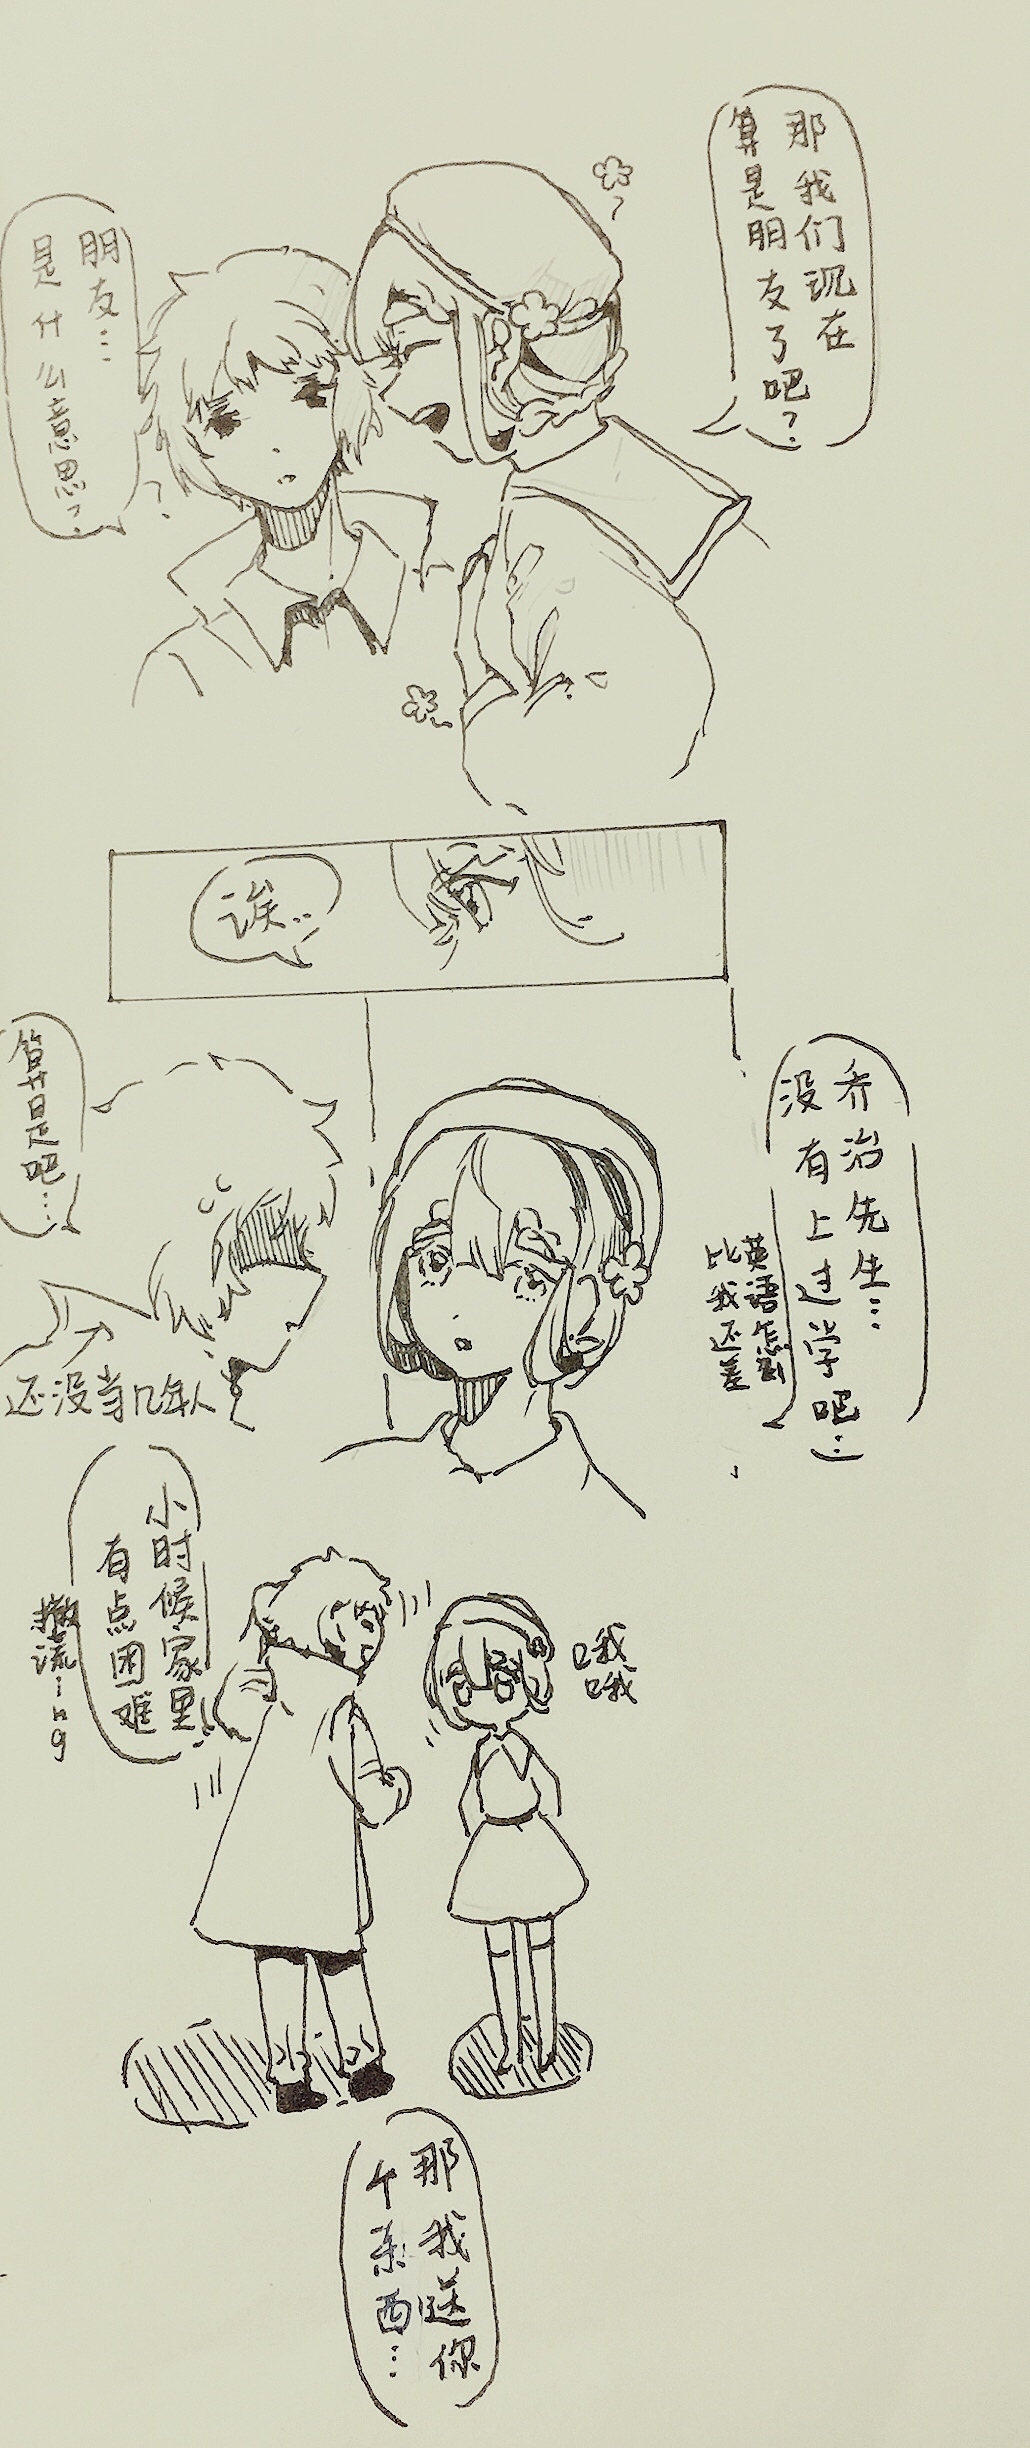 那我们现在
算是朋友了吧?
朋友…
是什么意思?
?
诶…
乔治先生…
没有上过学吧…
英语怎么
比我还差
算是吧…
还没当几年人
小时候家里
有点困难
撒谎ing
哦哦
那我送你
个东西…